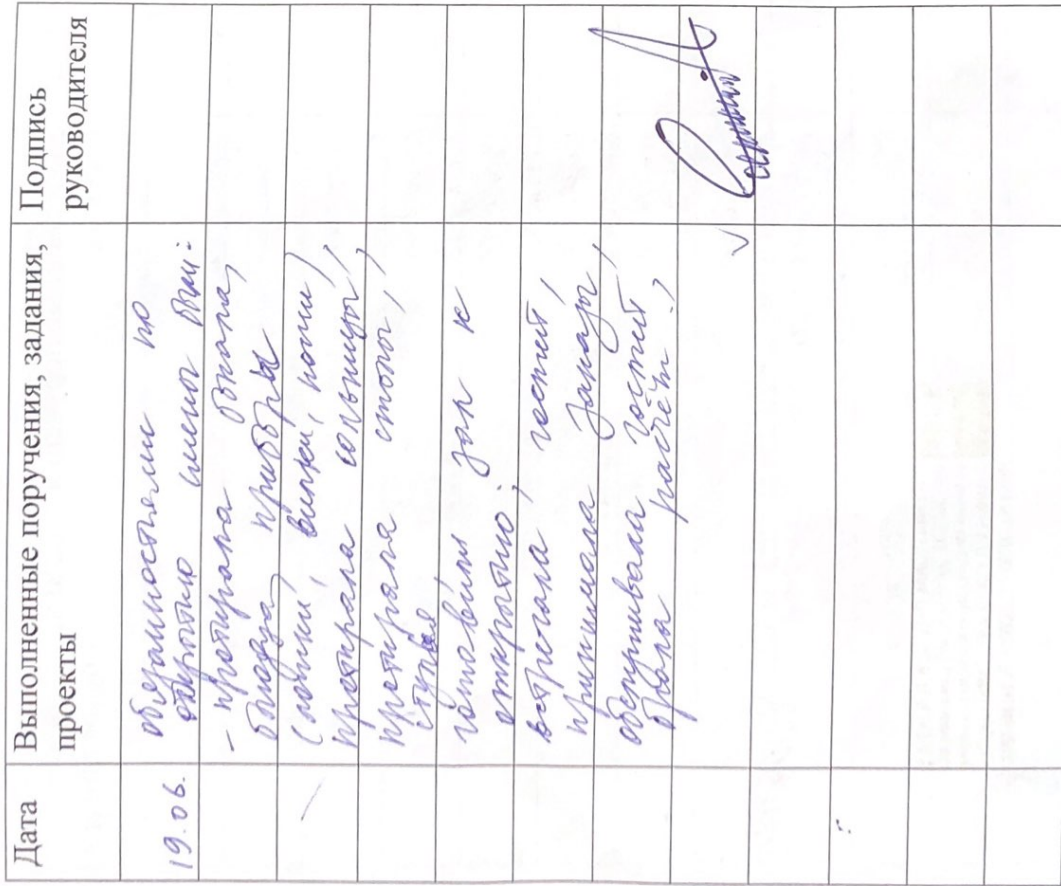 Дата
Выполненные поручения, задания,
проекты
Подпись
руководителя
19.06.
обязанностями по
открытию смены были:
- протирала бокалы,
блюдца, приборы
(ложки, вилки, ножи)
протирала солонницы,
протирала столы,
стулья
готовили зал к
открытию;
встречала гостей,
принимала заказы,
обслуживала гостей
брала расчёт.